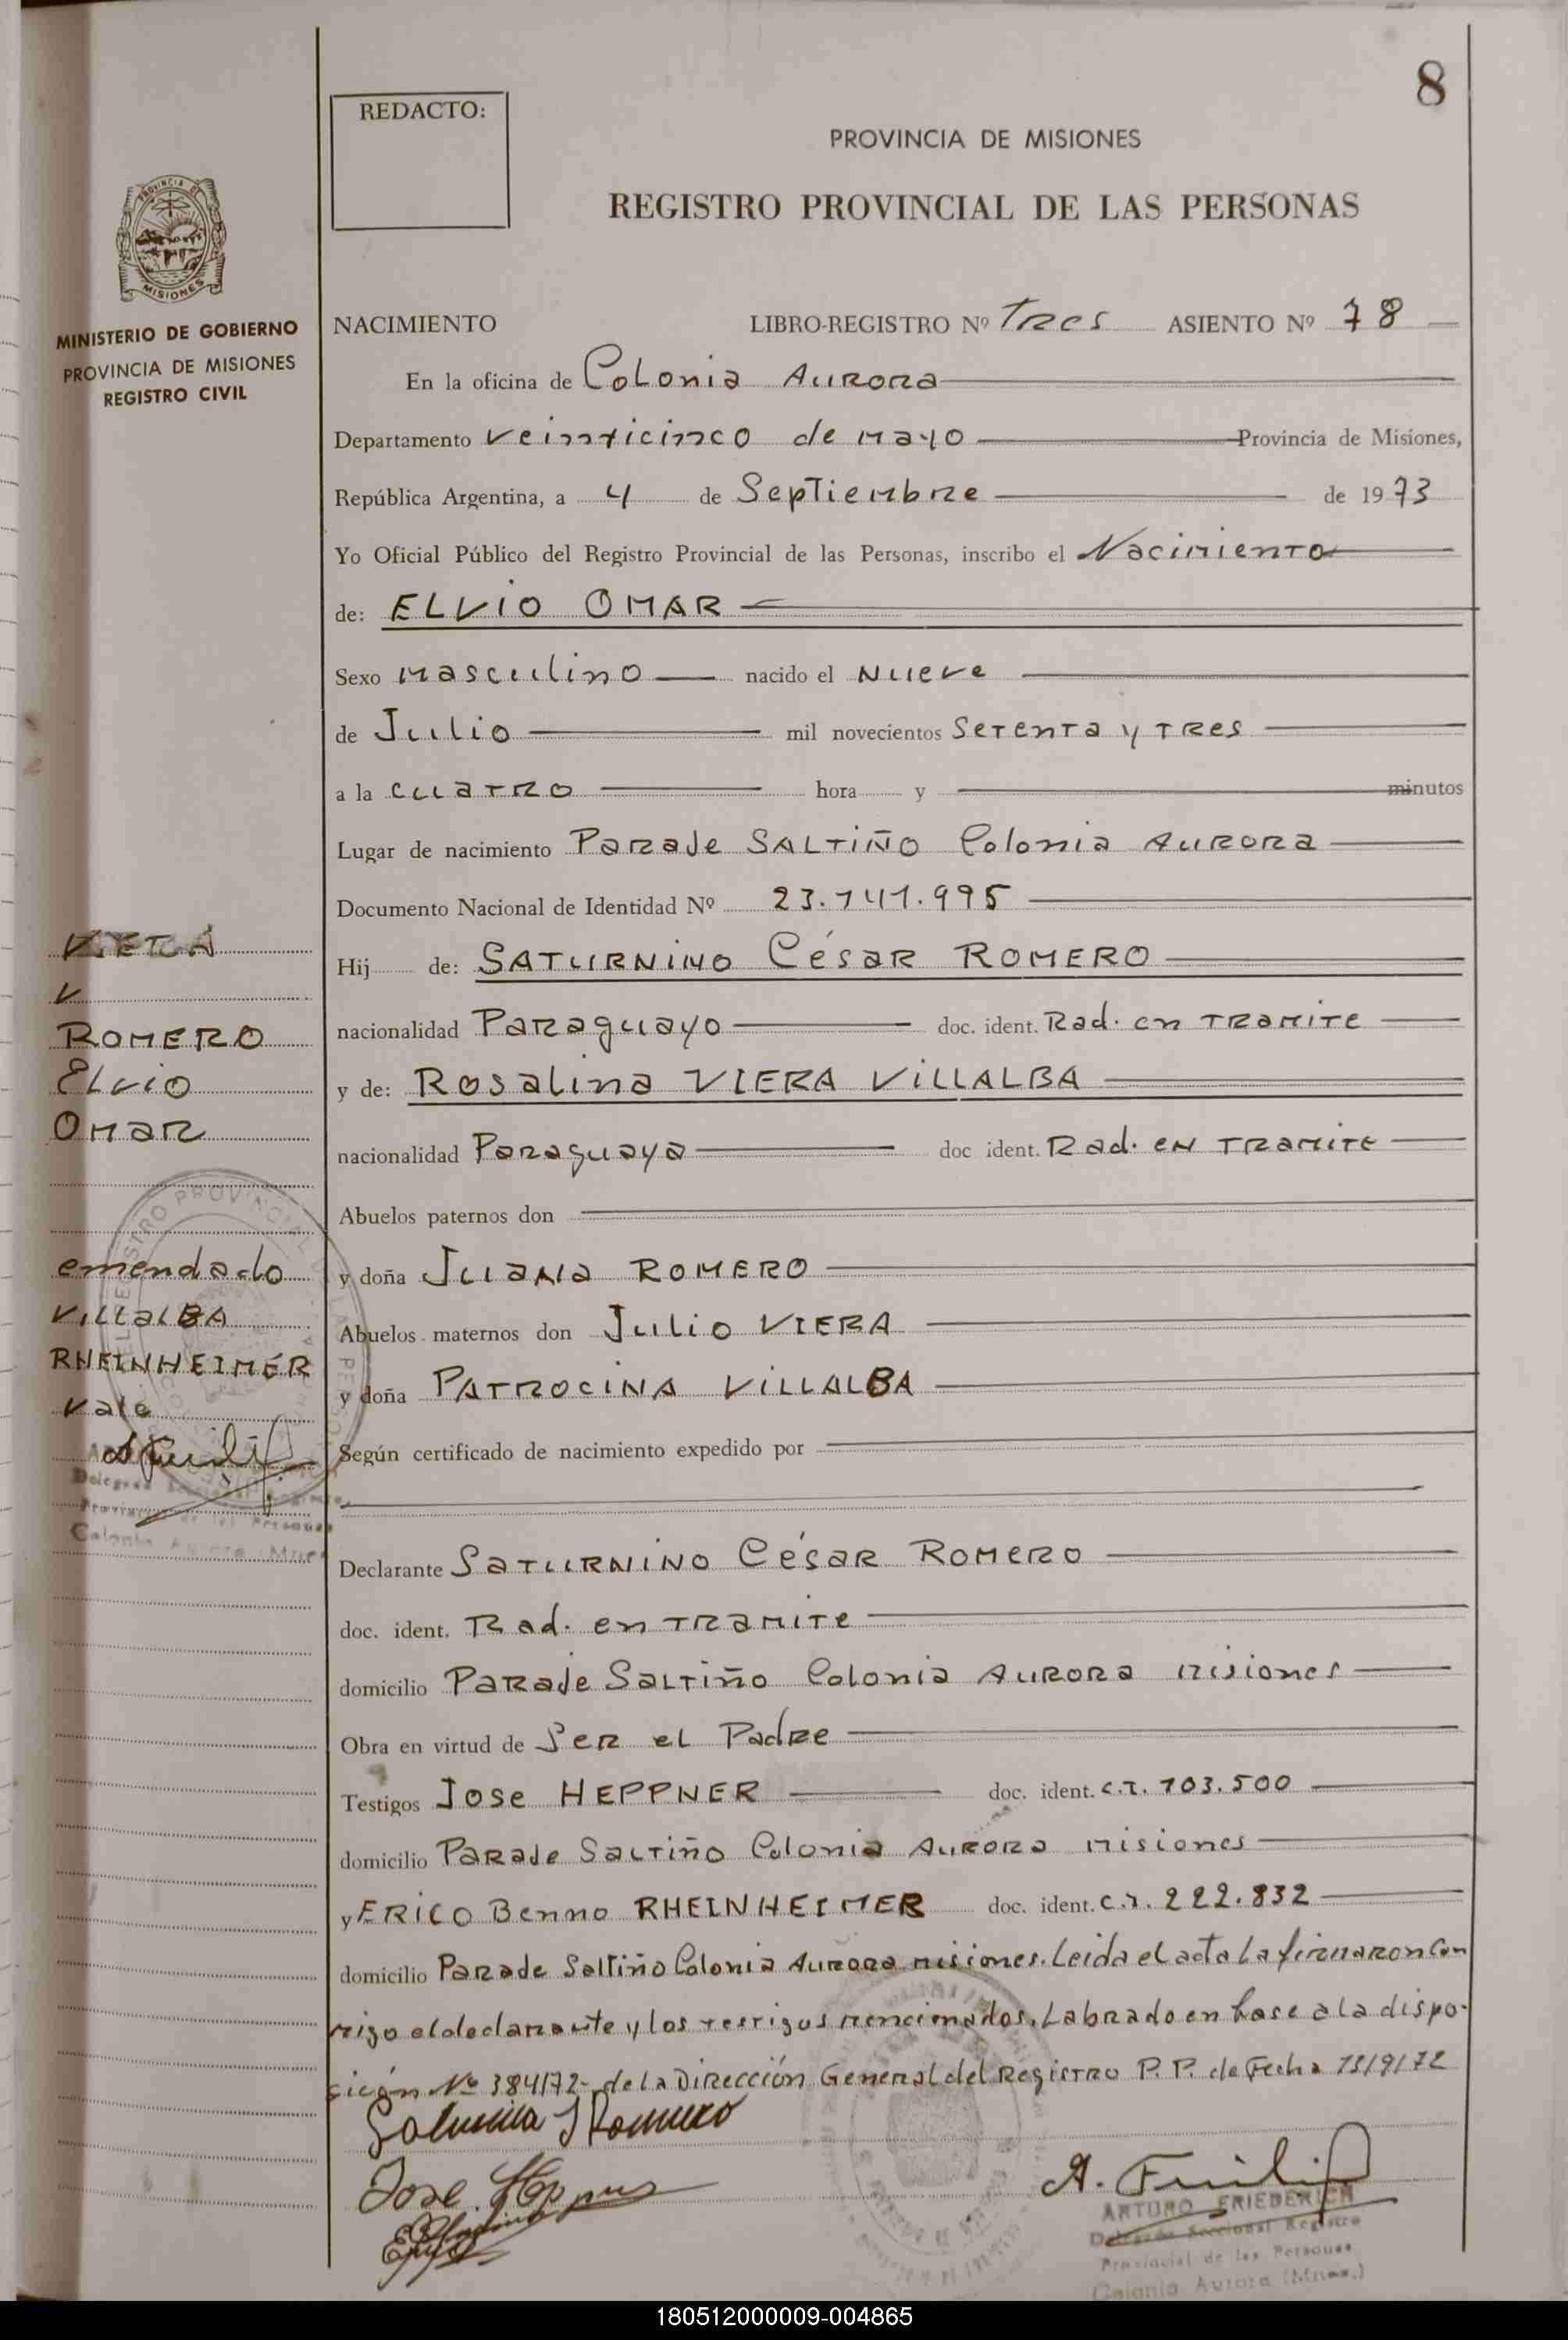 8
REDACTO:
PROVINCIA DE MISIONES
REGISTRO PROVINCIAL DE LAS PERSONAS
MISIONES
MINISTERIO DE GOBIERNO
PROVINCIA DE MISIONES
REGISTRO CIVIL
NACIMIENTO LIBRO-REGISTRO Nº Tres ASIENTO Nº 78
En la oficina de Colonia Aurora
Departamento veinticinco de mayo Provincia de Misiones,
República Argentina, a 4 de Septiembre de 1973
Yo Oficial Público del Registro Provincial de las Personas, inscribo el Nacimiento
de: ELVIO OMAR
Sexo masculino nacido el Nueve
de Julio mil novecientos Setenta y tres
a la cuatro hora y minutos
Lugar de nacimiento Paraje SALTIÑO Colonia Aurora
Documento Nacional de Identidad Nº 23.141.995
Hij de: SATURNINO César ROMERO
nacionalidad Paraguayo doc. ident. Rad. en tramite
y de: Rosalina VIERA VILLALBA
nacionalidad Paraguaya doc ident. Rad. en tramite
Abuelos paternos don
y doña Juana ROMERO
Abuelos maternos don Julio VIERA
y doña PATROCINA VILLALBA
Según certificado de nacimiento expedido por
Declarante SATURNINO César Romero
doc. ident. Rad. en tramite
domicilio Paraje Saltiño Colonia Aurora misiones
Obra en virtud de Ser el Padre
Testigos Jose HEPPNER doc. ident. c.i. 103.500
domicilio Paraje Saltiño Colonia Aurora misiones
y ERICO Benno RHEINHEIMER doc. ident. c.i. 222.832
domicilio Parade Saltiño Colonia Aurora misiones. Leida el acta La firmaron Con
migo el declarante y los testigos mencionados. Labrado en base a la dispo-
sición Nº 384/72- de la Dirección General del Registro P.P. de Fecha 15/9/72
ROMERO
Elvio
Omar
emendado
VILLALBA
RHEINHEIMER
vale
Delegado Seccional Registro
Provincial de las Personas
Colonia Aurora Mnes
Jose Heppner
ARTURO FRIEDERICH
Delegado Seccional Registro
Provincial de las Personas
Colonia Aurora (Mnes.)
180512000009-004865